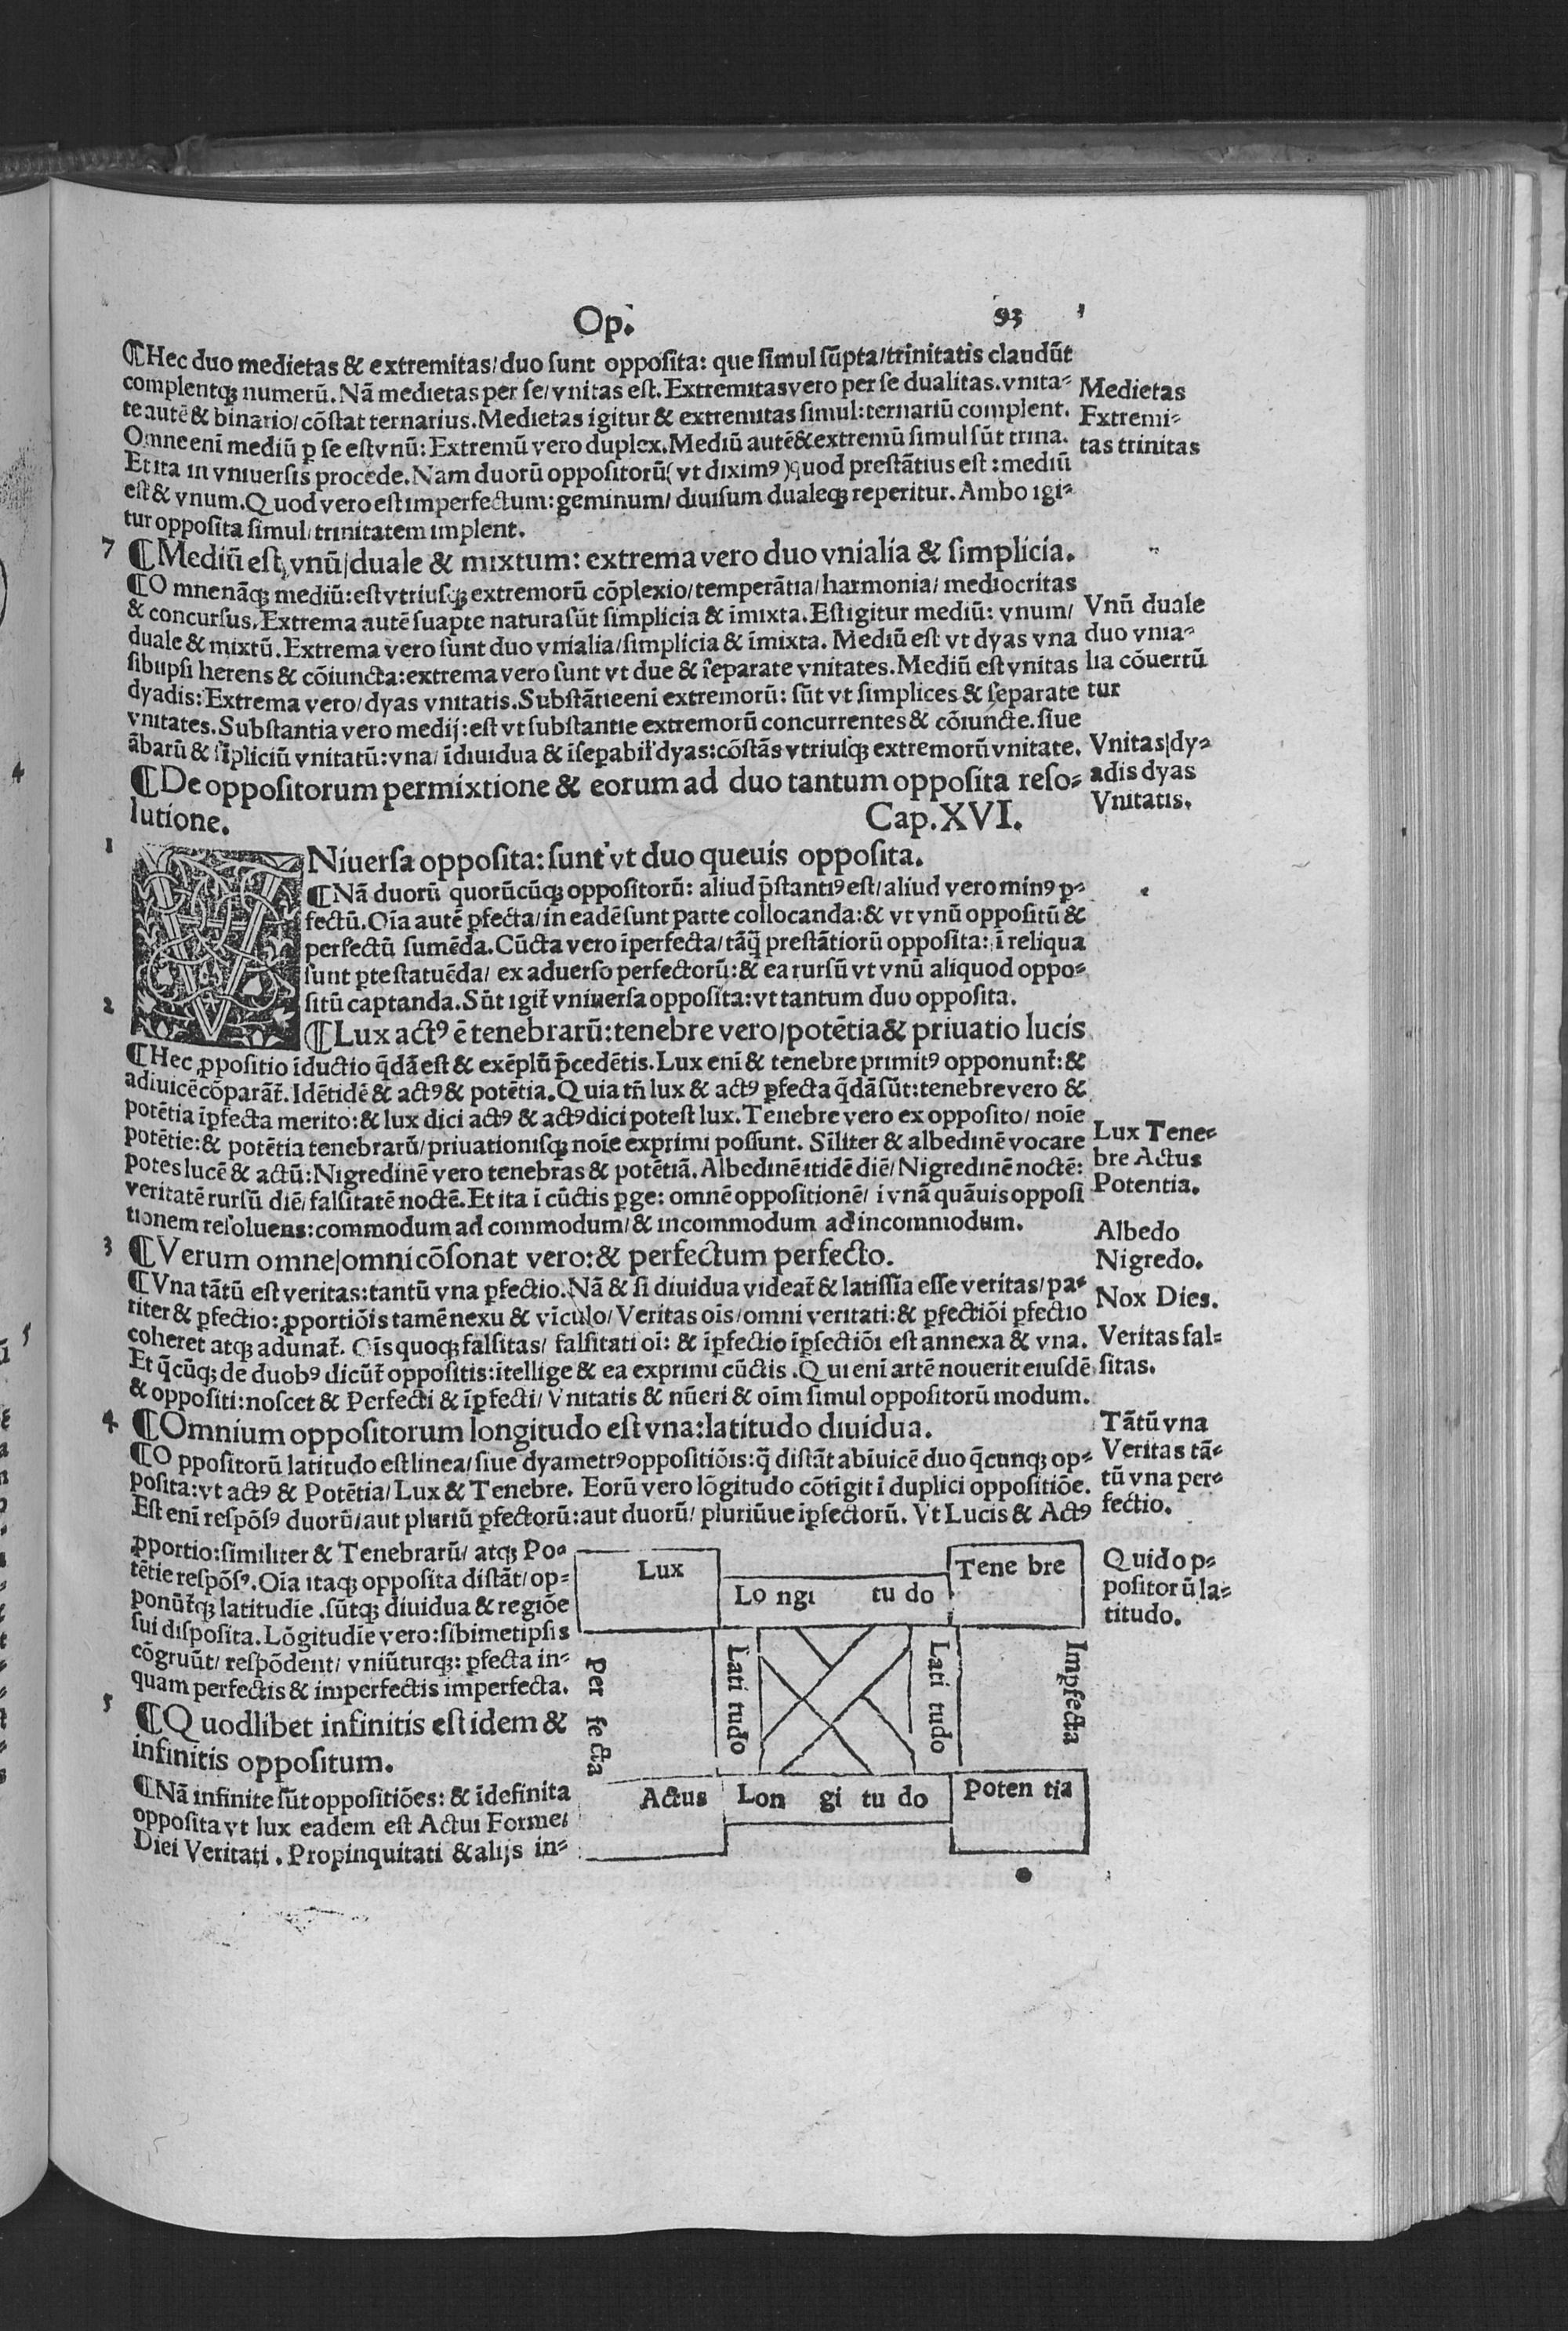 Op.
93
¶Hec duo medietas & extremitas/duo sunt opposita: que simul sūpta/trinitatis claudūt
complentqꝫ numerū. Nā medietas per se/vnitas est. Extremitas vero per se dualitas. vnita-
te autē & binario/cōstat ternarius. Medietas igitur & extremitas simul: ternariū complent.
Omne enī mediū ꝑ se est vnū: Extremū vero duplex. Mediū autē & extremū simul sūt trina.
Et ita in vniuersis procede. Nam duorū oppositorū (vt diximꝰ) quod prestātius est: mediū
est & vnum. Quod vero est imperfectum: geminum/diuisum dualeqꝫ reperitur. Ambo igi-
tur opposita simul/trinitatem implent.
Medietas
Extremi-
tas trinitas
7 ¶Mediū est, vnū/duale & mixtum: extrema vero duo vnialia & simplicia.
¶Omne nāqꝫ mediū: est vtriusqꝫ extremorū cōplexio/temperātia/harmonia/mediocritas
& concursus. Extrema autē suapte natura sūt simplicia & īmixta. Est igitur mediū: vnum/
duale & mixtū. Extrema vero sunt duo vnialia/simplicia & īmixta. Mediū est vt dyas vna
sibiipsi herens & cōiuncta: extrema vero sunt vt due & separate vnitates. Mediū est vnitas
dyadis: Extrema vero/dyas vnitatis. Substātie enī extremorū: sūt vt simplices & separate
vnitates. Substantia vero medij: est vt substantie extremorū concurrentes & cōiuncte. siue
ābarū & sīpliciū vnitatū: vna/īdiuidua & īsepabil' dyas: cōstās vtriusqꝫ extremorū vnitate.
Vnū duale
duo vnia-
lia cōuertū
tur
Vnitas dy-
adis dyas
Vnitatis.
¶De oppositorum permixtione & eorum ad duo tantum opposita reso-
lutione. Cap.XVI.
1 VNiuersa opposita: sunt vt duo queuis opposita.
¶Nā duorū quorūcūqꝫ oppositorū: aliud p̄stantiꝰ est/aliud vero minꝰ ꝑ-
fectū. Oīa autē ꝑfecta/in eadē sunt parte collocanda: & vt vnū oppositū &
perfectū sumēda. Cūcta vero īperfecta/tāq̄ prestātiorū opposita: ī reliqua
sunt ꝑte statuēda/ex aduerso perfectorū: & ea rursū vt vnū aliquod oppo-
sitū captanda. Sūt igit̄ vniuersa opposita: vt tantum duo opposita.
2 ¶Lux actꝰ ē tenebrarū: tenebre vero/potētia & priuatio lucis
¶Hec ꝓpositio īductio q̄dā est & exēplū p̄cedētis. Lux enī & tenebre primitꝰ opponunt̄: &
adiuicē cōparāt̄. Idētidē & actꝰ & potētia. Quia tn̄ lux & actꝰ ꝑfecta q̄dā sūt: tenebre vero &
potētia īꝑfecta merito: & lux dici actꝰ & actꝰ dici potest lux. Tenebre vero ex opposito/noīe
potētie: & potētia tenebrarū/priuationisqꝫ noīe exprimi possunt. Sīliter & albedinē vocare
potes lucē & actū: Nigredinē vero tenebras & potētiā. Albedinē itidē diē/Nigredinē noctē:
veritatē rursū diē/falsitatē noctē. Et ita ī cūctis ꝑge: omnē oppositionē/ī vnā quāuis opposi
tionem resoluens: commodum ad commodum/& incommodum ad incommodum.
Lux Tene-
bre Actus
Potentia.
Albedo
Nigredo.
3 ¶Verum omne/omni cōsonat vero: & perfectum perfecto.
¶Vna tātū est veritas: tantū vna ꝑfectio. Nā & si diuidua videat̄ & latissīa esse veritas/pa-
riter & ꝑfectio: ꝓportiōis tamē nexu & vīculo/Veritas oīs/omni veritati: & ꝑfectiōi ꝑfectio
coheret atqꝫ adunat̄. Oīs quoqꝫ falsitas/falsitati oī: & īꝑfectio īꝑfectiōi est annexa & vna.
Et q̄cūqꝫ de duobꝰ dicūt̄ oppositis: ītellige & ea exprimi cūctis. Qui enī artē nouerit eiusdē
& oppositi: noscet & Perfecti & īꝑfecti/Vnitatis & nūeri & oīm simul oppositorū modum.
Nox Dies.
Veritas fal-
sitas.
4 ¶Omnium oppositorum longitudo est vna: latitudo diuidua.
¶Oppositorū latitudo est linea/siue dyametrꝰ oppositiōis: q̄ distāt abīuicē duo q̄cunqꝫ op-
posita: vt actꝰ & Potētia/Lux & Tenebre. Eorū vero lōgitudo cōtīgit ī duplici oppositiōe.
Est enī respōsꝰ duorū/aut pluriū ꝑfectorū: aut duorū/pluriūue īꝑfectorū. Vt Lucis & Actꝰ
ꝓportio: similiter & Tenebrarū/atqꝫ Po-
tētie respōsꝰ. Oīa itaqꝫ opposita distāt/op-
ponūt̄qꝫ latitudīe. sūtqꝫ diuidua & regiōe
sui disposita. Lōgitudīe vero: sibimetipsis
cōgruūt/respōdent/vniūturqꝫ: ꝑfecta in-
quam perfectis & imperfectis imperfecta.
Tātū vna
Veritas tā-
tū vna per-
fectio.
Quid op-
positorū la-
titudo.
5 ¶Quodlibet infinitis est idem &
infinitis oppositum.
¶Nā infinite sūt oppositiōes: & īdefinita
opposita vt lux eadem est Actui Forme/
Diei Veritati. Propinquitati & alijs in-
Lux
Longi tudo
Tene bre
Per fecta
Lati tudo
Lati tudo
Imꝑfecta
Actus
Lon gi tu do
Poten tia